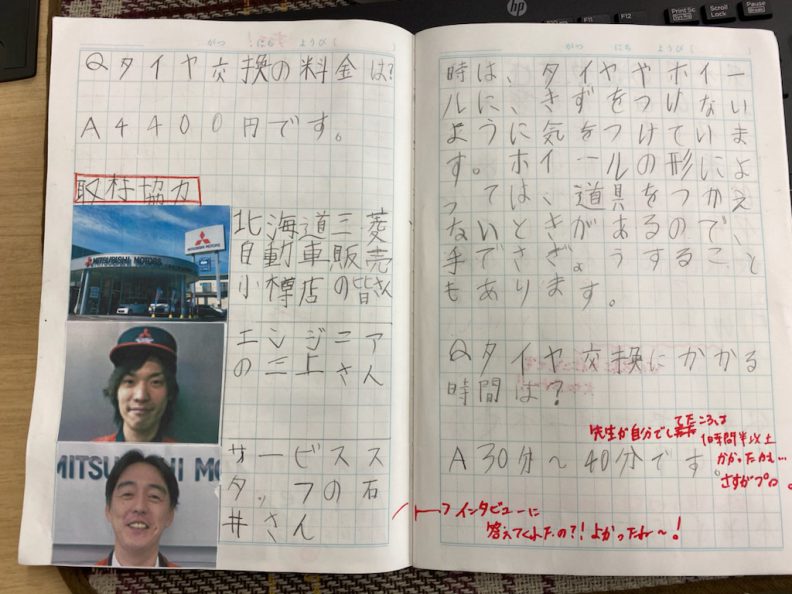 時は、タイヤやホイー
ルに、きずをつけない
ように気をつけていま
す。ホイールの形によ
っては、道具をつかえ
ないときがあるので、
手でさぎょうすること
もあります。
Qタイヤ交換にかかる
時間は?
A30分〜40分です。
先生が自分でしてたころは
1時間半以上
かかったかも…
さすがプロ。
Qタイヤ交換の料金は?
A4400円です。
取材協力
北海道三菱
自動車販売
小樽店の皆さん
エンジニア
の三上さん
サービスス
タッフの石
井さん
インタビューに
答えてくれたの?!よかったね〜!
MITSUBISHI MOTORS
MITSUBISHI MO
hp
Print Sc
SysRq
Scroll
Lock
Pause
Break
F11
F12
がつ にち ようび( )
がつ にち ようび( )